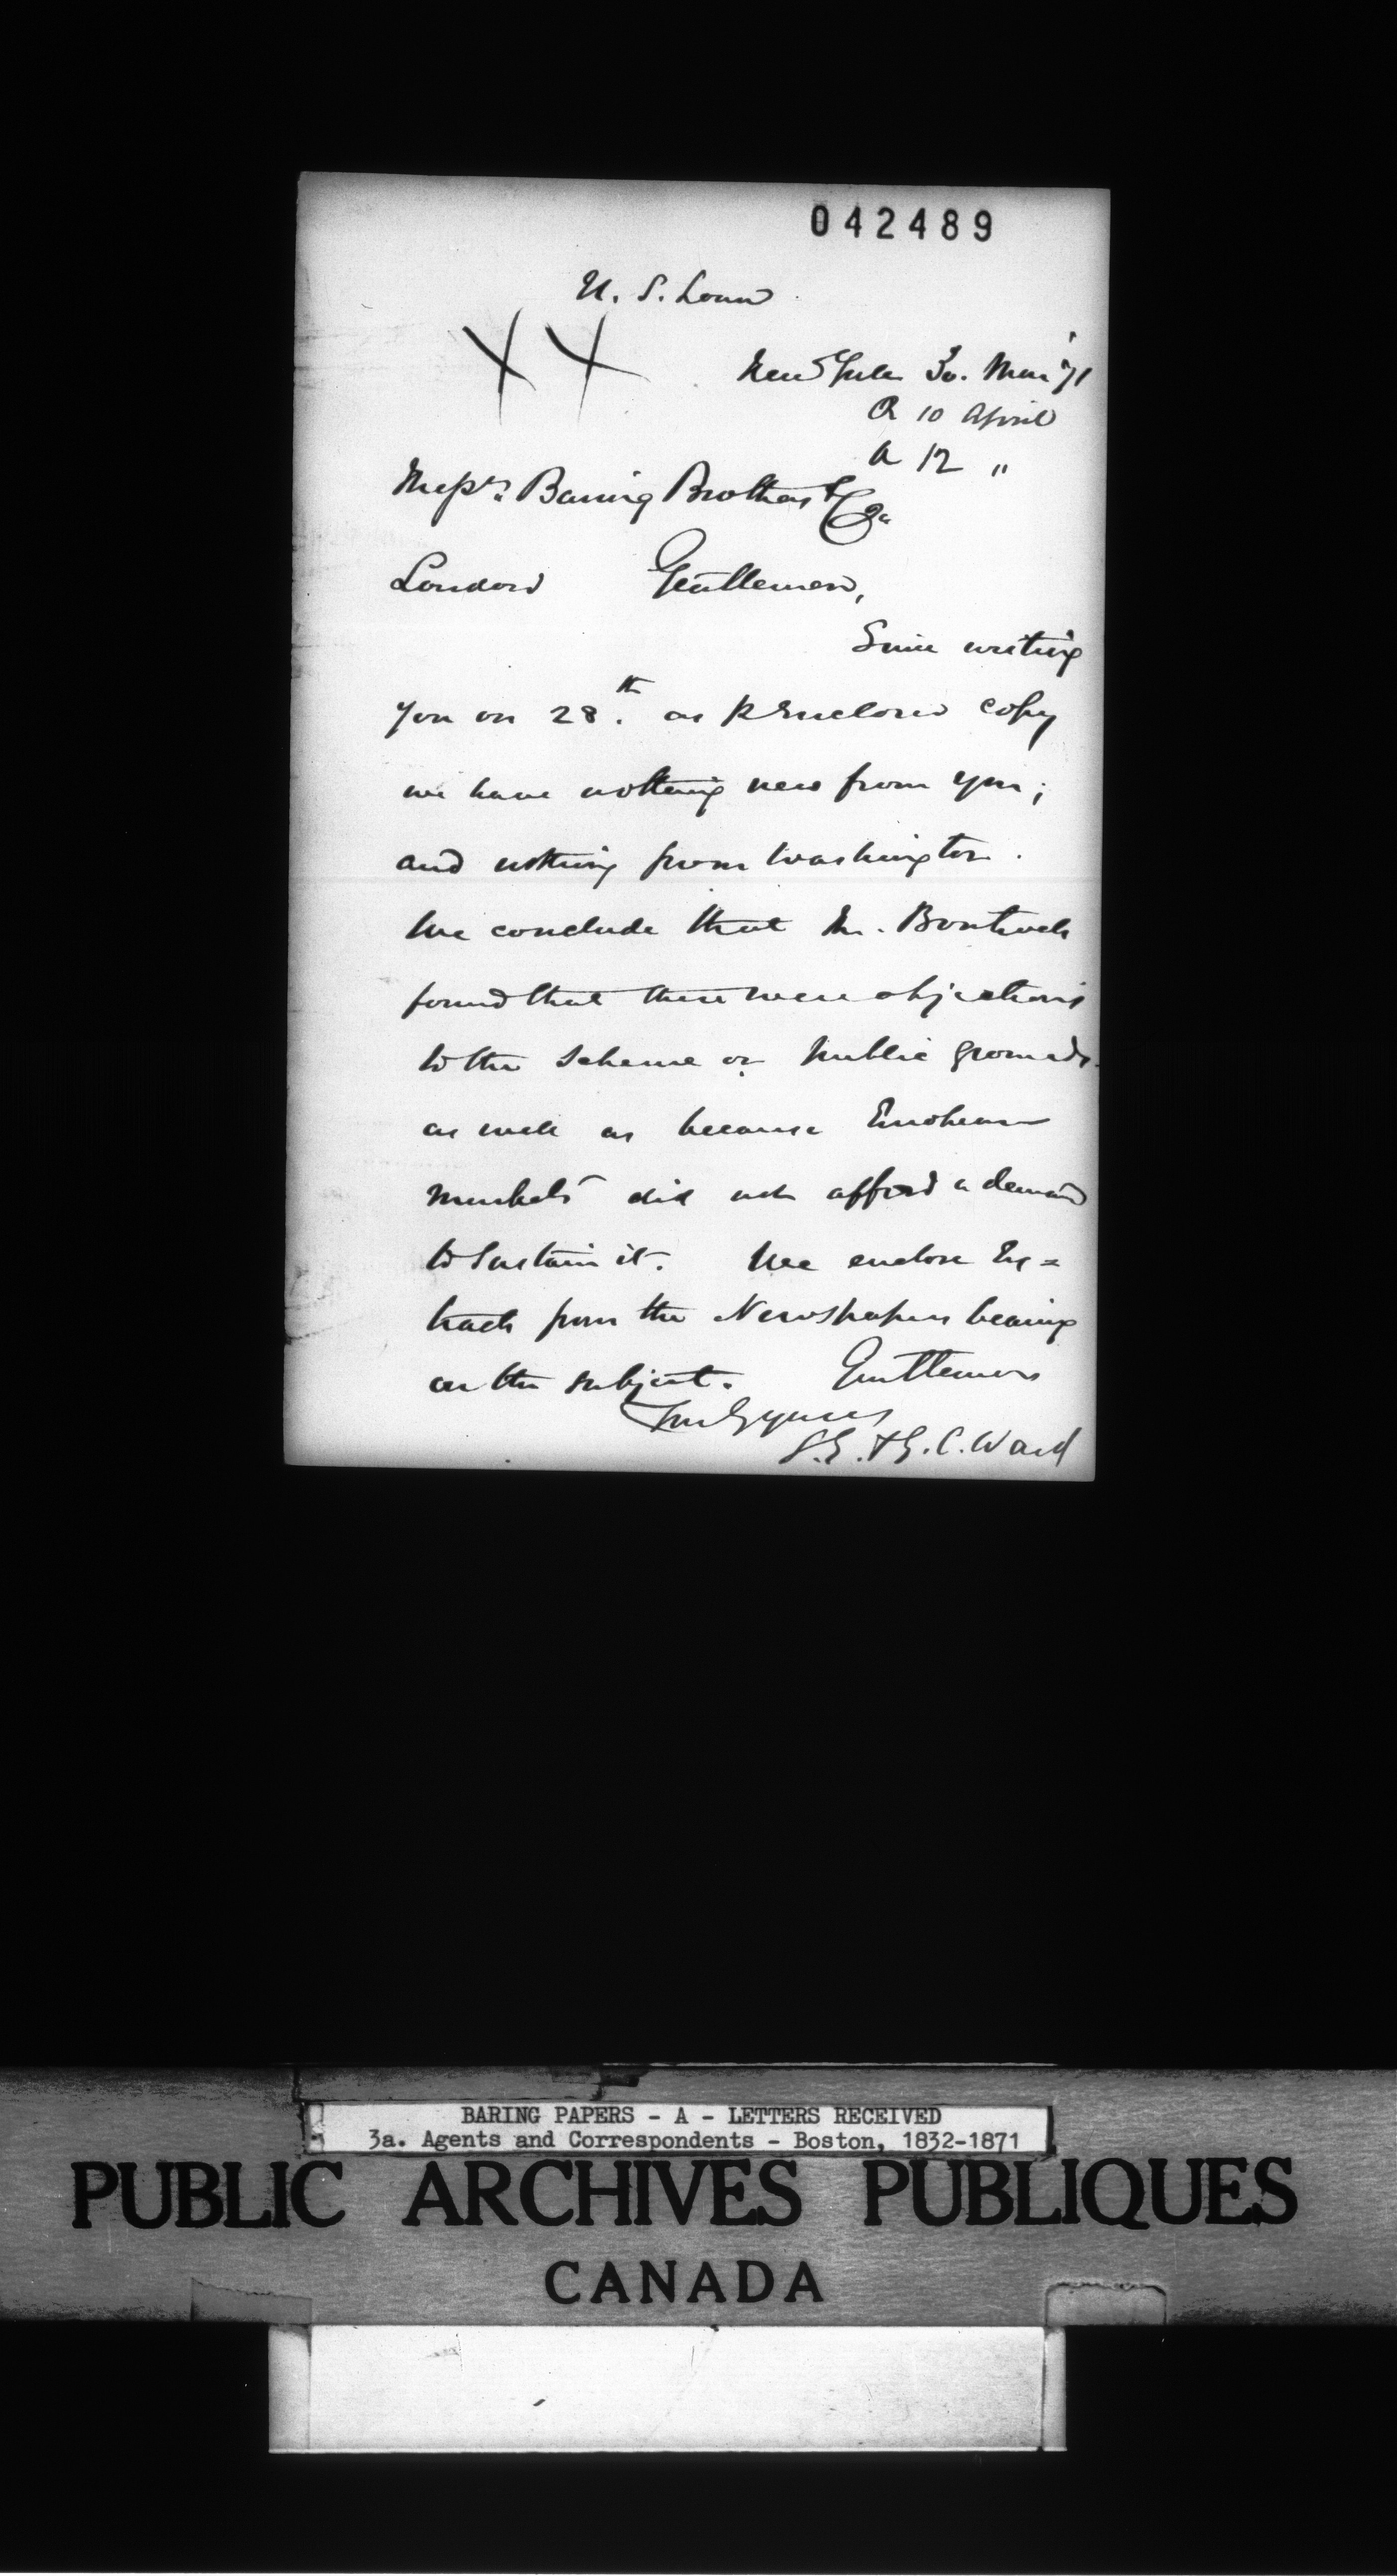 042489
U. S. Loan
XX
New York 30. Mar '71
R 10 April
A 12 "
Messrs. Baring Brothers & Co.
London Gentlemen,
Since writing
you on 28.th as p enclosed copy
we have nothing new from you;
and nothing from Washington.
We conclude that Mr. Boutwell
found that there were objections
to the scheme on public grounds
as well as because European
markets did not afford a demand
to sustain it. We enclose Ex=
tracts from the Newspapers bearing
on the subject. Gentlemen
S. G. & G. C. Ward
BARING PAPERS - A - LETTERS RECEIVED
3a. Agents and Correspondents - Boston, 1832-1871
PUBLIC ARCHIVES PUBLIQUES
CANADA